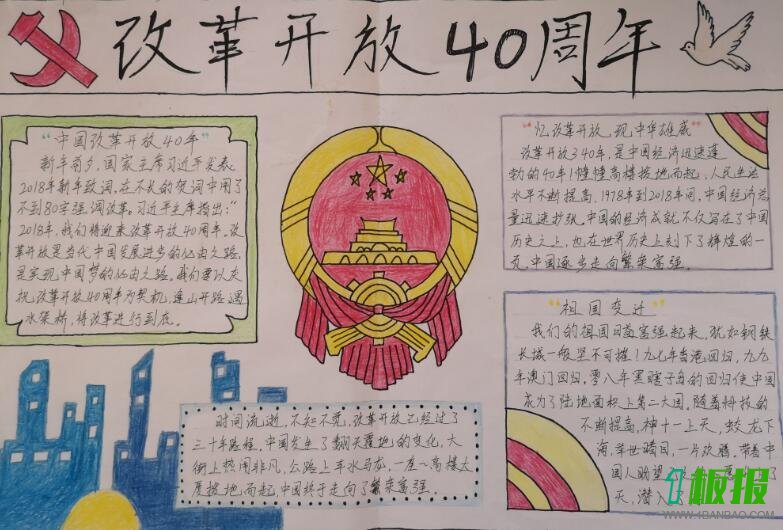 改革开放40周年
“中国改革开放40年”
新年前夕,国家主席习近平发表
2018年新年致词,在不长的贺词中用了
不到80字强调改革。习近平主席指出:“
2018年,我们将迎来改革开放40周年。改
革开放是当代中国发展进步的必由之路,
是实现中国梦的必由之路。我们要以庆
祝改革开放40周年为契机,逢山开路,遇
水架桥,将改革进行到底。
“忆改革开放,现中华雄底”
改革开放340年,是中国经济迅速蓬
勃的40年!幢幢高楼拔地而起,人民生活
水平不断提高,1978年到2018年间,中国经济总
量迅速抄张,中国的经济成就,不仅写在了中国
历史之上,也在世界历史上刻下了辉煌的一
页,中国逐步走向繁荣富强。
“祖国变迁”
我们的祖国日益富强起来,犹如钢铁
长城一般坚不可摧!九七年香港回归,九九
年澳门回归,零八年黑瞎子岛的回归使中国
成为了陆地面积上第二大国,随着科技的
不断提高,神十一上天,蛟龙下
海,举世瞩目,一片欢腾,带着中
国人盼望
天,潜入
时间流逝,不知不觉,改革开放已经过了
三十年路程,中国发生了翻天覆地的变化,大
街上热闹非凡,公路上车水马龙,一座一座高楼大
厦拔地而起,中国终于走向了繁荣富强。
板报
WWW.1BANBAO.COM